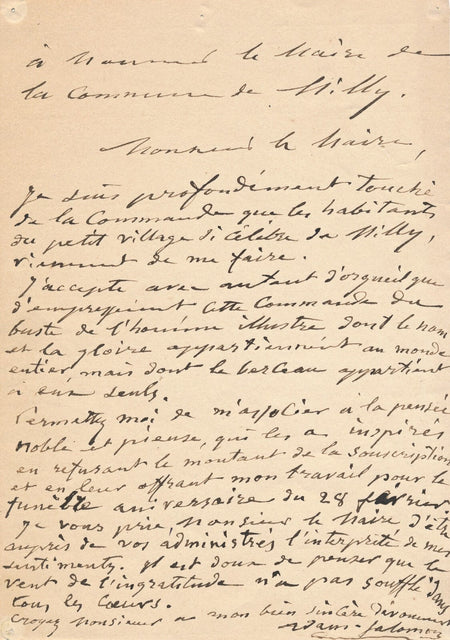 à Monsieur le Maire de
la Commune de Milly.
Monsieur le Maire,
Je suis profondément touché
de la Commande que les habitants
du petit village si célèbre de Milly,
viennent de me faire.
J'accepte avec autant d'orgueil que
d'empressement cette Commande du
buste de l'homme illustre dont le nom
et la gloire appartiennent au monde
entier mais dont le berceau appartient
à eux seuls.
Permettez moi de m'associer à la pensée
noble et pieuse, qui les a inspirés
en refusant le montant de la souscription
et en leur offrant mon travail pour le
funèbre aniversaire du 28 février
Je vous prie, Monsieur le Maire d'être
auprès de vos administrés l'interprète de mes
sentiments. Il est doux de penser que le
vent de l'ingratitude n'a pas soufflé dans
tous les Cœurs.
Croyez Monsieur a mon bien sincère dévouement
Adam-Salomon